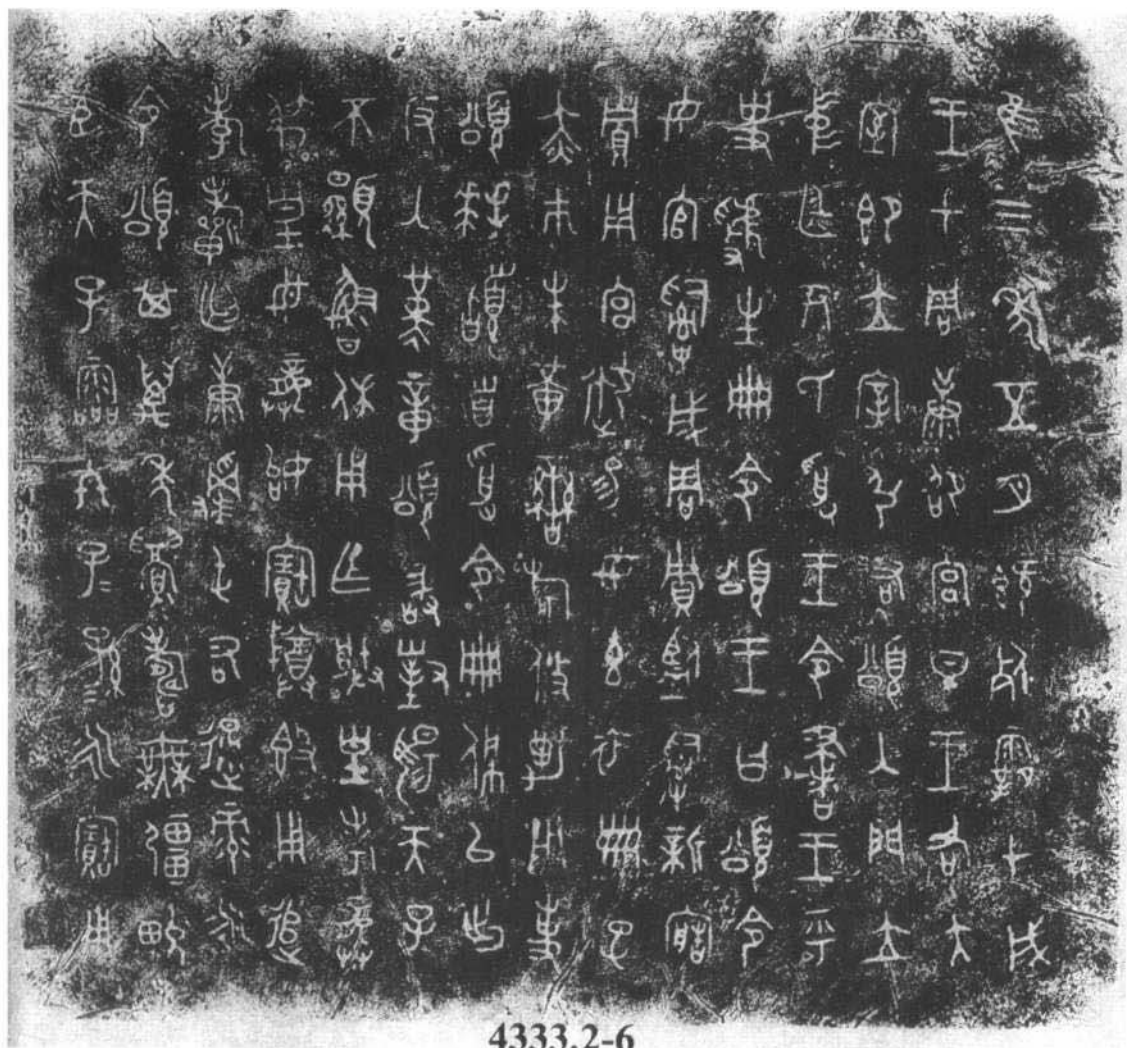 唯三年五月既死霸甲戌
王才周康邵宮旦王各大
室即立宰引右頌入門立
中廷尹氏受王令書王乎
史虢生冊令頌王曰頌令
女官𤔲成周貯監𤔲新造
貯用宮御易女玄衣黹屯
赤巿朱黃鑾旂攸勒用事
頌拜稽首受令冊佩以出
反入堇章頌敢對揚天子
不顯魯休用乍朕皇考龏
弔皇母龏姒寶尊簋用追
孝祈匄康𩁹屯右通彔永
令頌其萬年眉壽無疆畯
臣天子霝冬子=孫=永寶用
4333.2-6